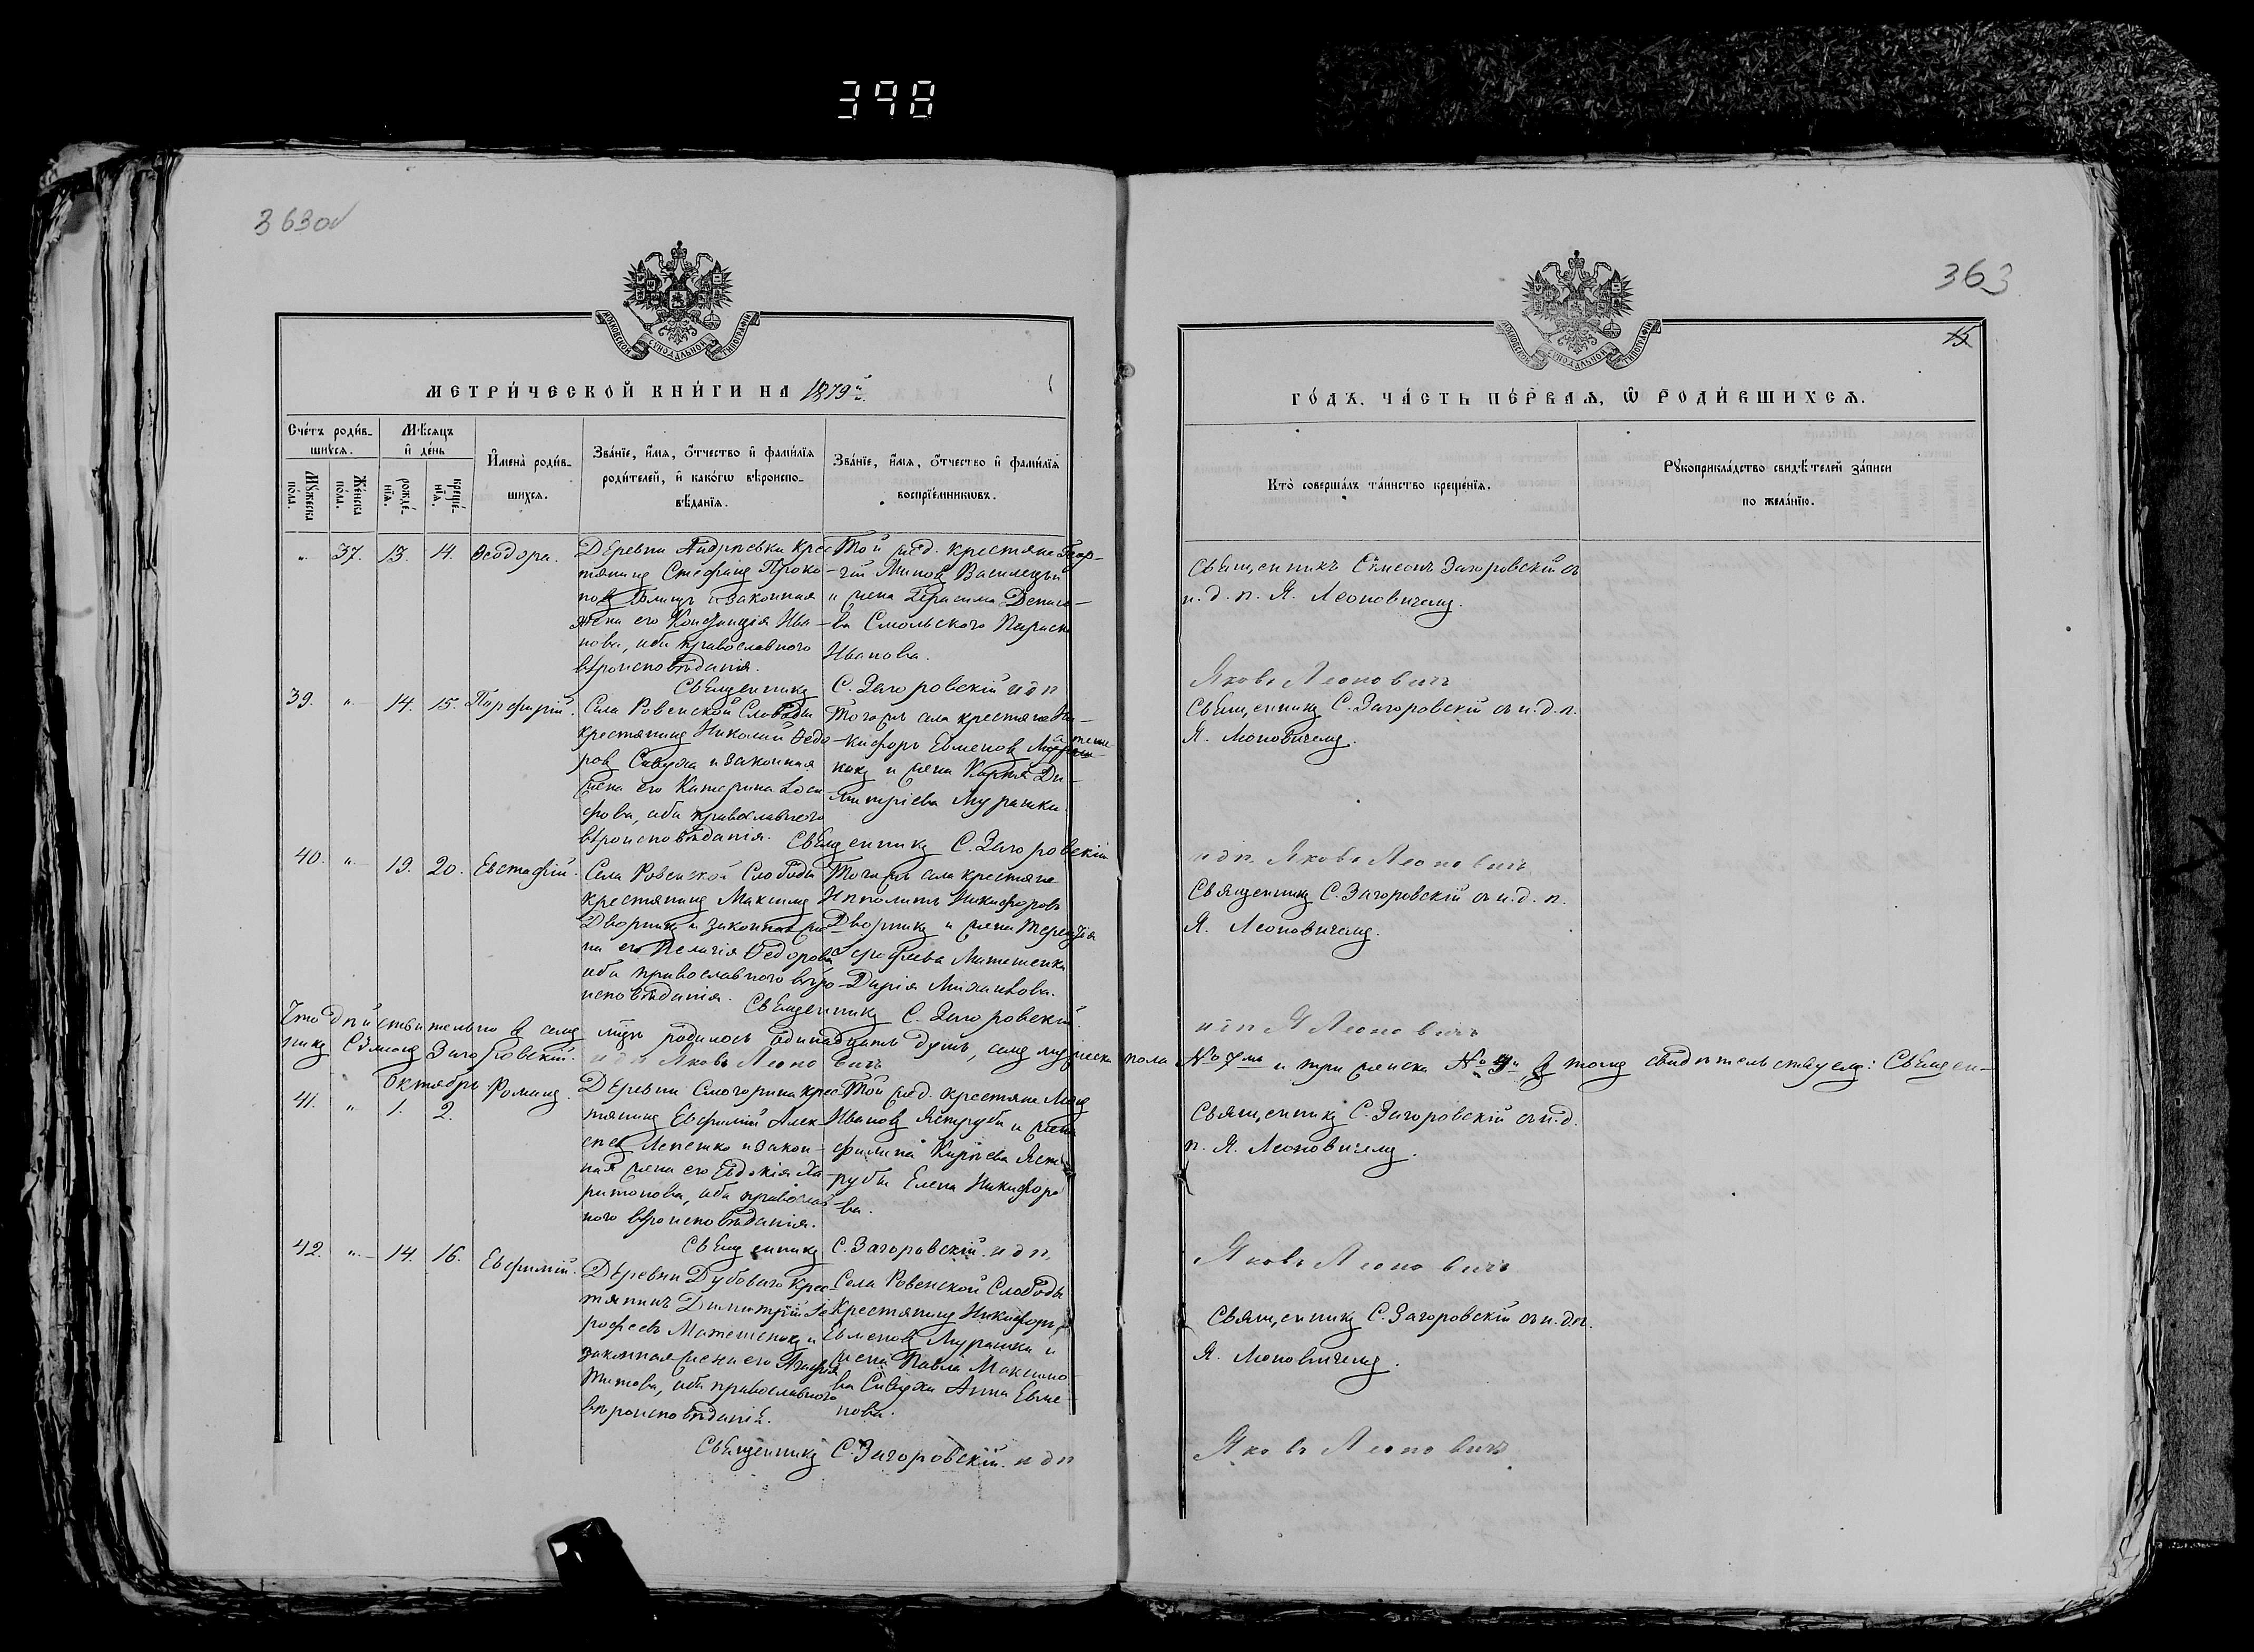 398
363об
363
15
МОСКОВСКОЙ СУНОДАЛЬНОЙ ТИПОГРАФІИ
МОСКОВСКОЙ СУНОДАЛЬНОЙ ТИПОГРАФІИ
МЕТРИ́ЧЕСКОЙ КНИ́ГИ НА 1879й
ГО́ДЪ. ЧА́СТЬ ПЕ́РВАѦ, Ѿ РОДИ́ВШИХСѦ.
Сче́тъ роди́в-
шихсѧ.
Мꙋ́жеска пола.
Же́нска пола.
Мѣ́сѧцъ
и҆ де́нь
рожде́-
нїѧ.
креще́-
нїѧ.
И҆мена̀ роди́в-
шихсѧ.
Зва́нїе, и҆́мѧ, ѻ҆́тчество и҆ фами́лїѧ
роди́телей, и҆ како́гѡ вѣроиспо-
вѣ́данїѧ.
Зва́нїе, и҆́мѧ, ѻ҆́тчество и҆ фами́лїѧ
воспрїе́мникѡвъ.
Кто̀ соверша́лъ та́инство креще́нїѧ.
Рꙋкоприкла́дство свидѣ́телей за́писи
по жела́нїю.
" 37. 13. 14. Ѳеодора.
Деревни Андреевки крес-
тянинъ Стефанъ Проко-
повъ и законная
жена его Ива-
нова, оба православнаго
вѣроисповѣданія.
Той же д. крестяне Геор-
гій Миновъ
и жена Герасима Денисо-
ва Смольского Параске
Иванова.
Священникъ Сѵмеонъ Загоровскій съ
и. д. п. Я. Леоновичемъ.
Священникъ С. Загоровскій и д п
Яковъ Леоновичъ
39. " 14. 15. Порфирій.
Села Ровенской Слободы
крестянинъ Николай Ѳедо-
ровъ Савуха и законная
жена его Катерина Іоси-
фова, оба православнаго
вѣроисповѣданія.
Тогожъ села крестяне Ни-
кифоръ Евменовъ
и жена Карпа Ди-
митріева Мурашки.
Священникъ С. Загоровскій съ и. д. п.
Я. Леоновичемъ.
Священникъ С. Загоровскій
и д п. Яковъ Леоновичъ
40. " 19. 20. Евстафій.
Села Ровенской Слободы
крестянинъ Максимъ
Дворникъ и законная же-
на его Пелагія Ѳедорова
оба православнаго вѣро-
исповѣданія.
Тогожъ села крестяне
Ипполитъ Никифоровъ
Дворникъ и жена Терентія
Ерофеева Матешенка
Дарія Михайлова.
Священникъ С. Загоровскій съ и. д. п.
Я. Леоновичемъ.
Священникъ С. Загоровскій.
и д п Я Леоновичъ
Что дѣйствительно въ семъ мѣс. родилось одинадцать душъ, семъ мужеска пола № 7мъ и три женска въ томъ свидѣтельствуемъ: Священ-
никъ Сѵмеонъ Загоровскій. и д п Яковъ Леоновичъ
Октябрь
41. " 1. 2. Романъ.
Деревни Смогорина крес-
тянинъ Евфимій Алек-
Лепешко и закон-
ная жена его Евдокія Ха-
ритонова, оба православ-
ного вѣроисповѣданія.
Той же д. крестяне
Ивановъ Ястреба и жена
Филипа Киріева Яст-
рубы Елена Никифоро-
ва.
Священникъ С. Загоровскій съ и. д.
п. Я. Леоновичемъ.
Священникъ С. Загоровскій. и д п,
Яковъ Леоновичъ
42. " 14. 16. Евфимій.
Деревни Дубоваго крес-
тянинъ Димитрій Ге-
рофеевъ Матешенко и
законная жена его Агафія
Титова, оба православного
вѣроисповѣданія.
Села Ровенской Слободы
крестянинъ Никифоръ
Евменовъ Мурашка и
жена Павла Максимо-
ва Савухи Анна Евме-
нова.
Священникъ С. Загоровскій съ и. д. п.
Я. Леоновичемъ.
Священникъ С. Загоровскій. и д п
Яковъ Леоновичъ